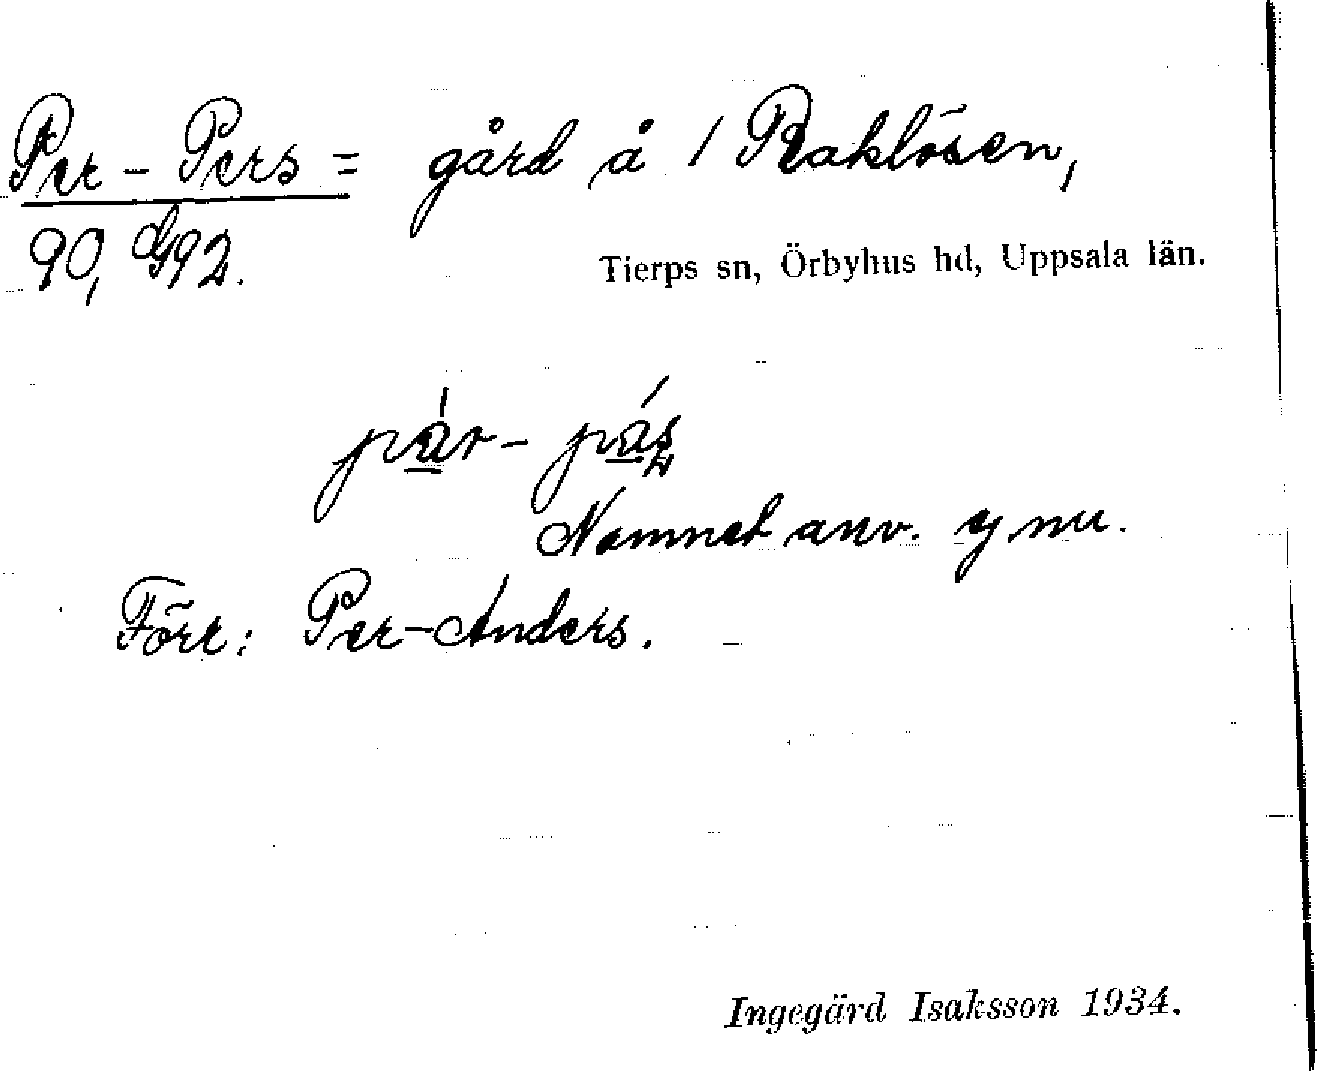 Per-Pers = gård å 1 Raklösen,
90, G92.
Tierps sn, Örbyhus hd, Uppsala län.
pa̲r- pa̲ṣ
Namnet anv. ej nu.
Förr: Per-Anders.
Ingegärd Isaksson 1934.